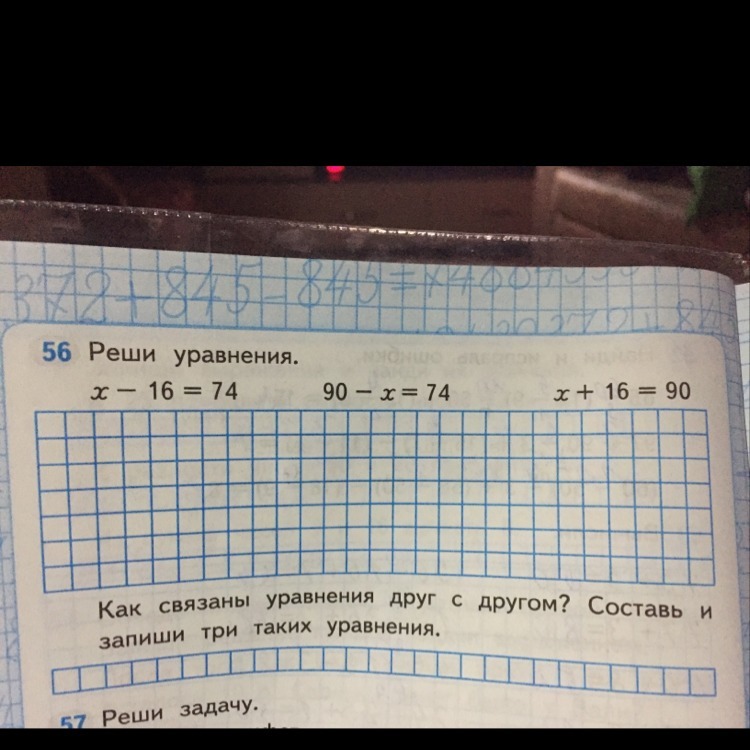 372 + 845 - 845 =
56 Реши уравнения.
x − 16 = 74 90 − x = 74 x + 16 = 90
Как связаны уравнения друг с другом? Составь и
запиши три таких уравнения.
57 Реши задачу.